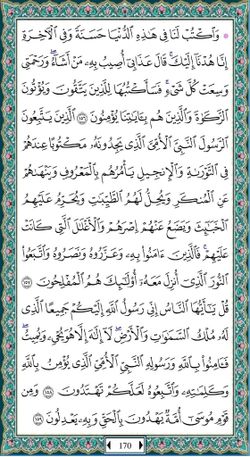 ۞ وَٱكْتُبْ لَنَا فِى هَـٰذِهِ ٱلدُّنْيَا حَسَنَةً وَفِى ٱلْـَٔاخِرَةِ
إِنَّا هُدْنَآ إِلَيْكَ ۚ قَالَ عَذَابِىٓ أُصِيبُ بِهِۦ مَنْ أَشَآءُ ۖ وَرَحْمَتِى
وَسِعَتْ كُلَّ شَىْءٍ ۚ فَسَأَكْتُبُهَا لِلَّذِينَ يَتَّقُونَ وَيُؤْتُونَ
ٱلزَّكَوٰةَ وَٱلَّذِينَ هُم بِـَٔايَـٰتِنَا يُؤْمِنُونَ ١٥٦ ٱلَّذِينَ يَتَّبِعُونَ
ٱلرَّسُولَ ٱلنَّبِىَّ ٱلْأُمِّىَّ ٱلَّذِى يَجِدُونَهُۥ مَكْتُوبًا عِندَهُمْ
فِى ٱلتَّوْرَىٰةِ وَٱلْإِنجِيلِ يَأْمُرُهُم بِٱلْمَعْرُوفِ وَيَنْهَىٰهُمْ
عَنِ ٱلْمُنكَرِ وَيُحِلُّ لَهُمُ ٱلطَّيِّبَـٰتِ وَيُحَرِّمُ عَلَيْهِمُ
ٱلْخَبَـٰٓئِثَ وَيَضَعُ عَنْهُمْ إِصْرَهُمْ وَٱلْأَغْلَـٰلَ ٱلَّتِى كَانَتْ
عَلَيْهِمْ ۚ فَٱلَّذِينَ ءَامَنُوا۟ بِهِۦ وَعَزَّرُوهُ وَنَصَرُوهُ وَٱتَّبَعُوا۟
ٱلنُّورَ ٱلَّذِىٓ أُنزِلَ مَعَهُۥٓ ۙ أُو۟لَـٰٓئِكَ هُمُ ٱلْمُفْلِحُونَ ١٥٧
قُلْ يَـٰٓأَيُّهَا ٱلنَّاسُ إِنِّى رَسُولُ ٱللَّهِ إِلَيْكُمْ جَمِيعًا ٱلَّذِى
لَهُۥ مُلْكُ ٱلسَّمَـٰوَٰتِ وَٱلْأَرْضِ ۖ لَآ إِلَـٰهَ إِلَّا هُوَ يُحْىِۦ وَيُمِيتُ ۖ
فَـَٔامِنُوا۟ بِٱللَّهِ وَرَسُولِهِ ٱلنَّبِىِّ ٱلْأُمِّىِّ ٱلَّذِى يُؤْمِنُ بِٱللَّهِ
وَكَلِمَـٰتِهِۦ وَٱتَّبِعُوهُ لَعَلَّكُمْ تَهْتَدُونَ ١٥٨ وَمِن
قَوْمِ مُوسَىٰٓ أُمَّةٌ يَهْدُونَ بِٱلْحَقِّ وَبِهِۦ يَعْدِلُونَ ١٥٩
170